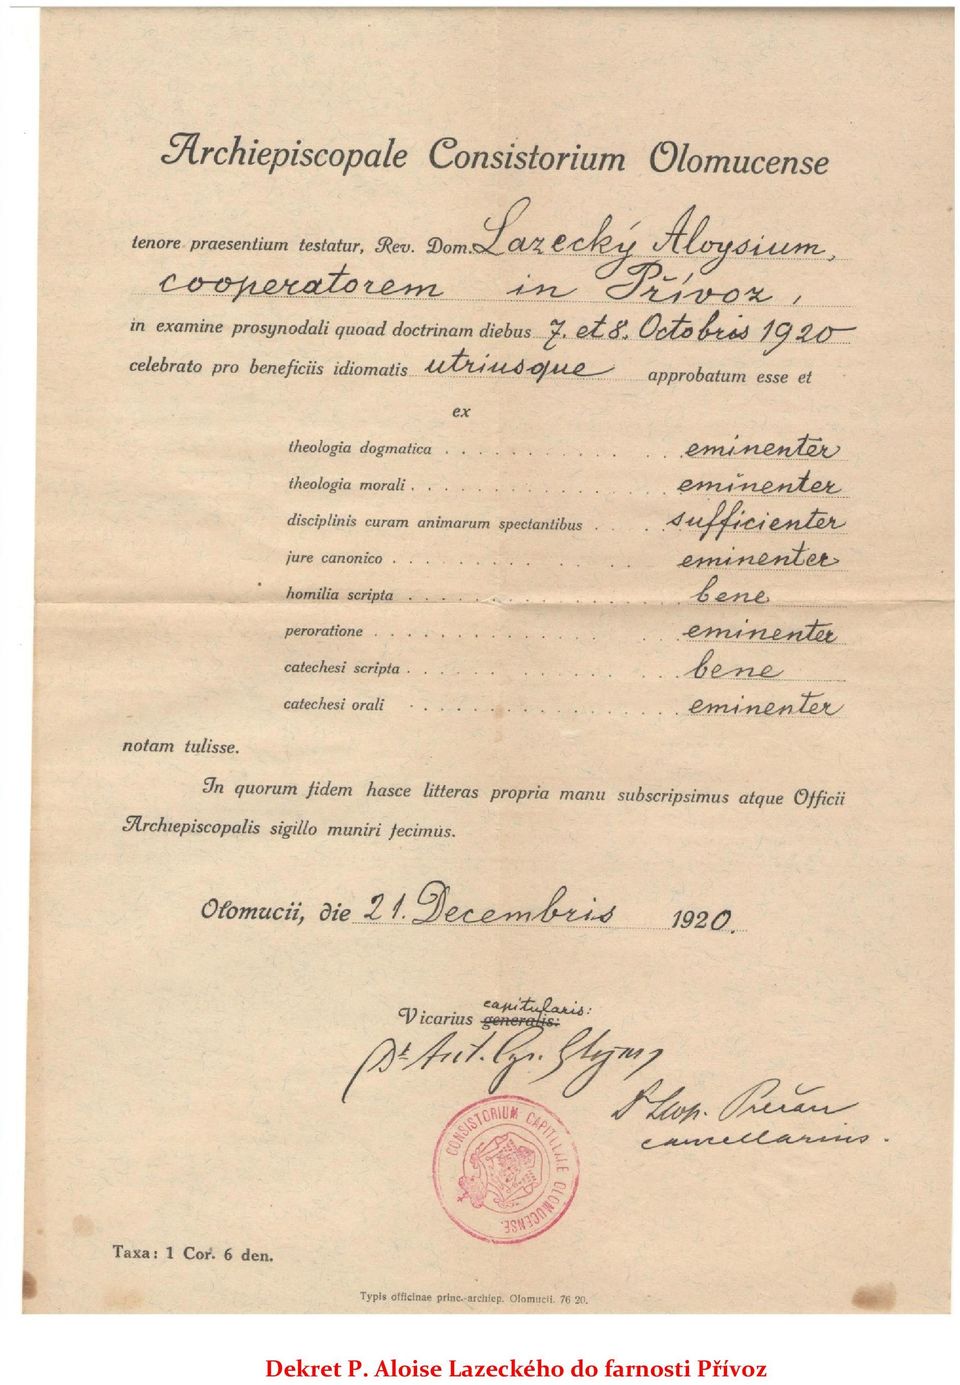 Archiepiscopale Consistorium Olomucense
tenore praesentium testatur, Rev. Dom. Lazecký Aloysium,
cooperatorem in Přívoz,
in examine prosynodali quoad doctrinam diebus 7. et 8. Octobris 1920
celebrato pro beneficiis idiomatis utriusque approbatum esse et
ex
theologia dogmatica . . . . . . . . . . . . eminenter
theologia morali . . . . . . . . . . . . . eminenter
disciplinis curam animarum spectantibus . . . . sufficienter
jure canonico . . . . . . . . . . . . . eminenter
homilia scripta . . . . . . . . . . . . . bene
peroratione . . . . . . . . . . . . . . eminenter
catechesi scripta . . . . . . . . . . . . . bene
catechesi orali . . . . . . . . . . . . . eminenter
notam tulisse.
In quorum fidem hasce litteras propria manu subscripsimus atque Officii
Archiepiscopalis sigillo muniri fecimus.
Olomucii, die 21. Decembris 1920.
capitularis:
Vicarius generalis:
Dr. Ant. Cyr.
Dr Leop. Prečan
cancellarius.
CONSISTORIUM CAPITULARE OLOMUCENSE
Taxa: 1 Cor. 6 den.
Typis officinae princ.-archiep. Olomucii. 76 20.
Dekret P. Aloise Lazeckého do farnosti Přívoz